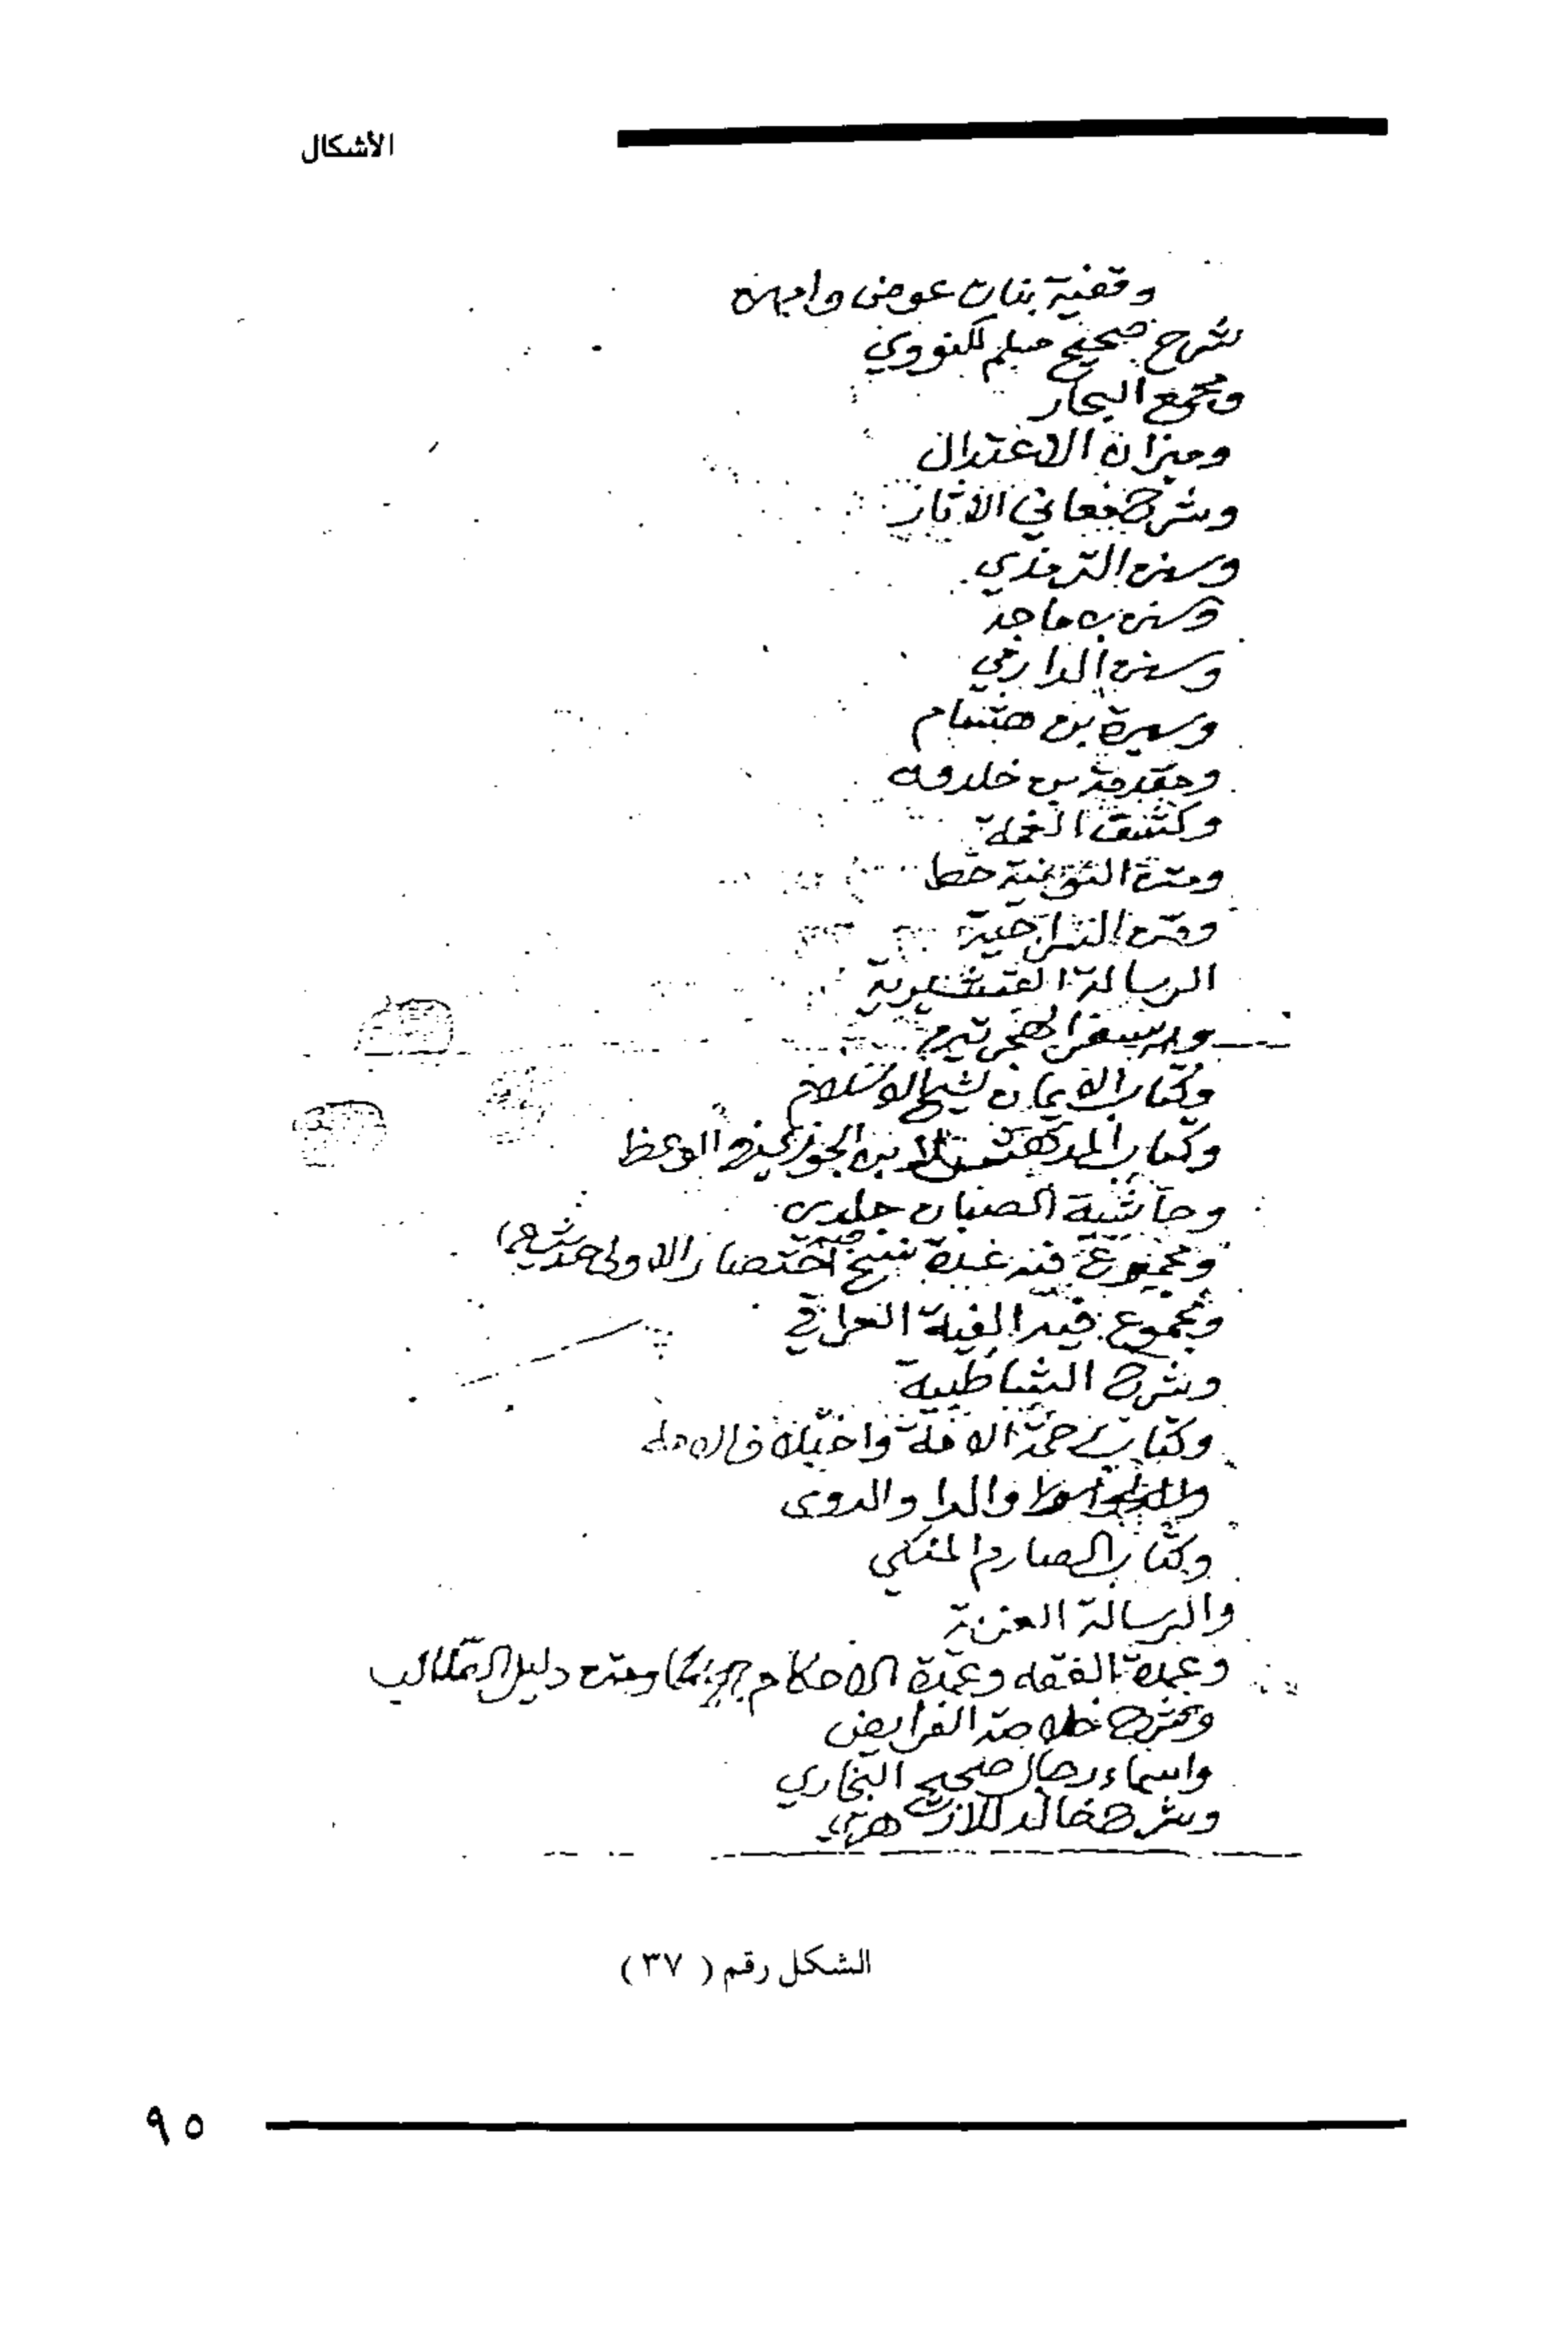 الأشكال
وقفية بنات عوض وامهن
شرح صحيح مسلم للنووي
ومجمع البحار
وميزان الاعتدال
وشرح معاني الاثار
وسنن الترمذي
وسنن بن ماجه
وسنن الدارمي
وسيرة بن هشام
ومقدمة بن خلدون
وكشف الغمة
ومتن النونية خط
ومتن السراجية
الرسالة القشيرية
وكتاب الايمان لشيخ الاسلام
وكتاب المدهش لابن الجوزي في الوعظ
وحاشية الصبان جلدين
ومجموع فيه عدة نسخ اختصار الاولى
ومجموع فيه الفية العراقي
وشرح الشاطبية
وكتاب رحمة الامة واختلاف الامه
والداء والدوى
وكتاب الصارم المنكي
والرسالة العزية
وعمدة الفقه وعمدة الاحكام ومتن دليل الطالب
وشرح خلاصة الفرايض
واسماء رجال صحيح البخاري
وشرح خالد للازهري
الشكل رقم ( ٣٧ )
٩٥